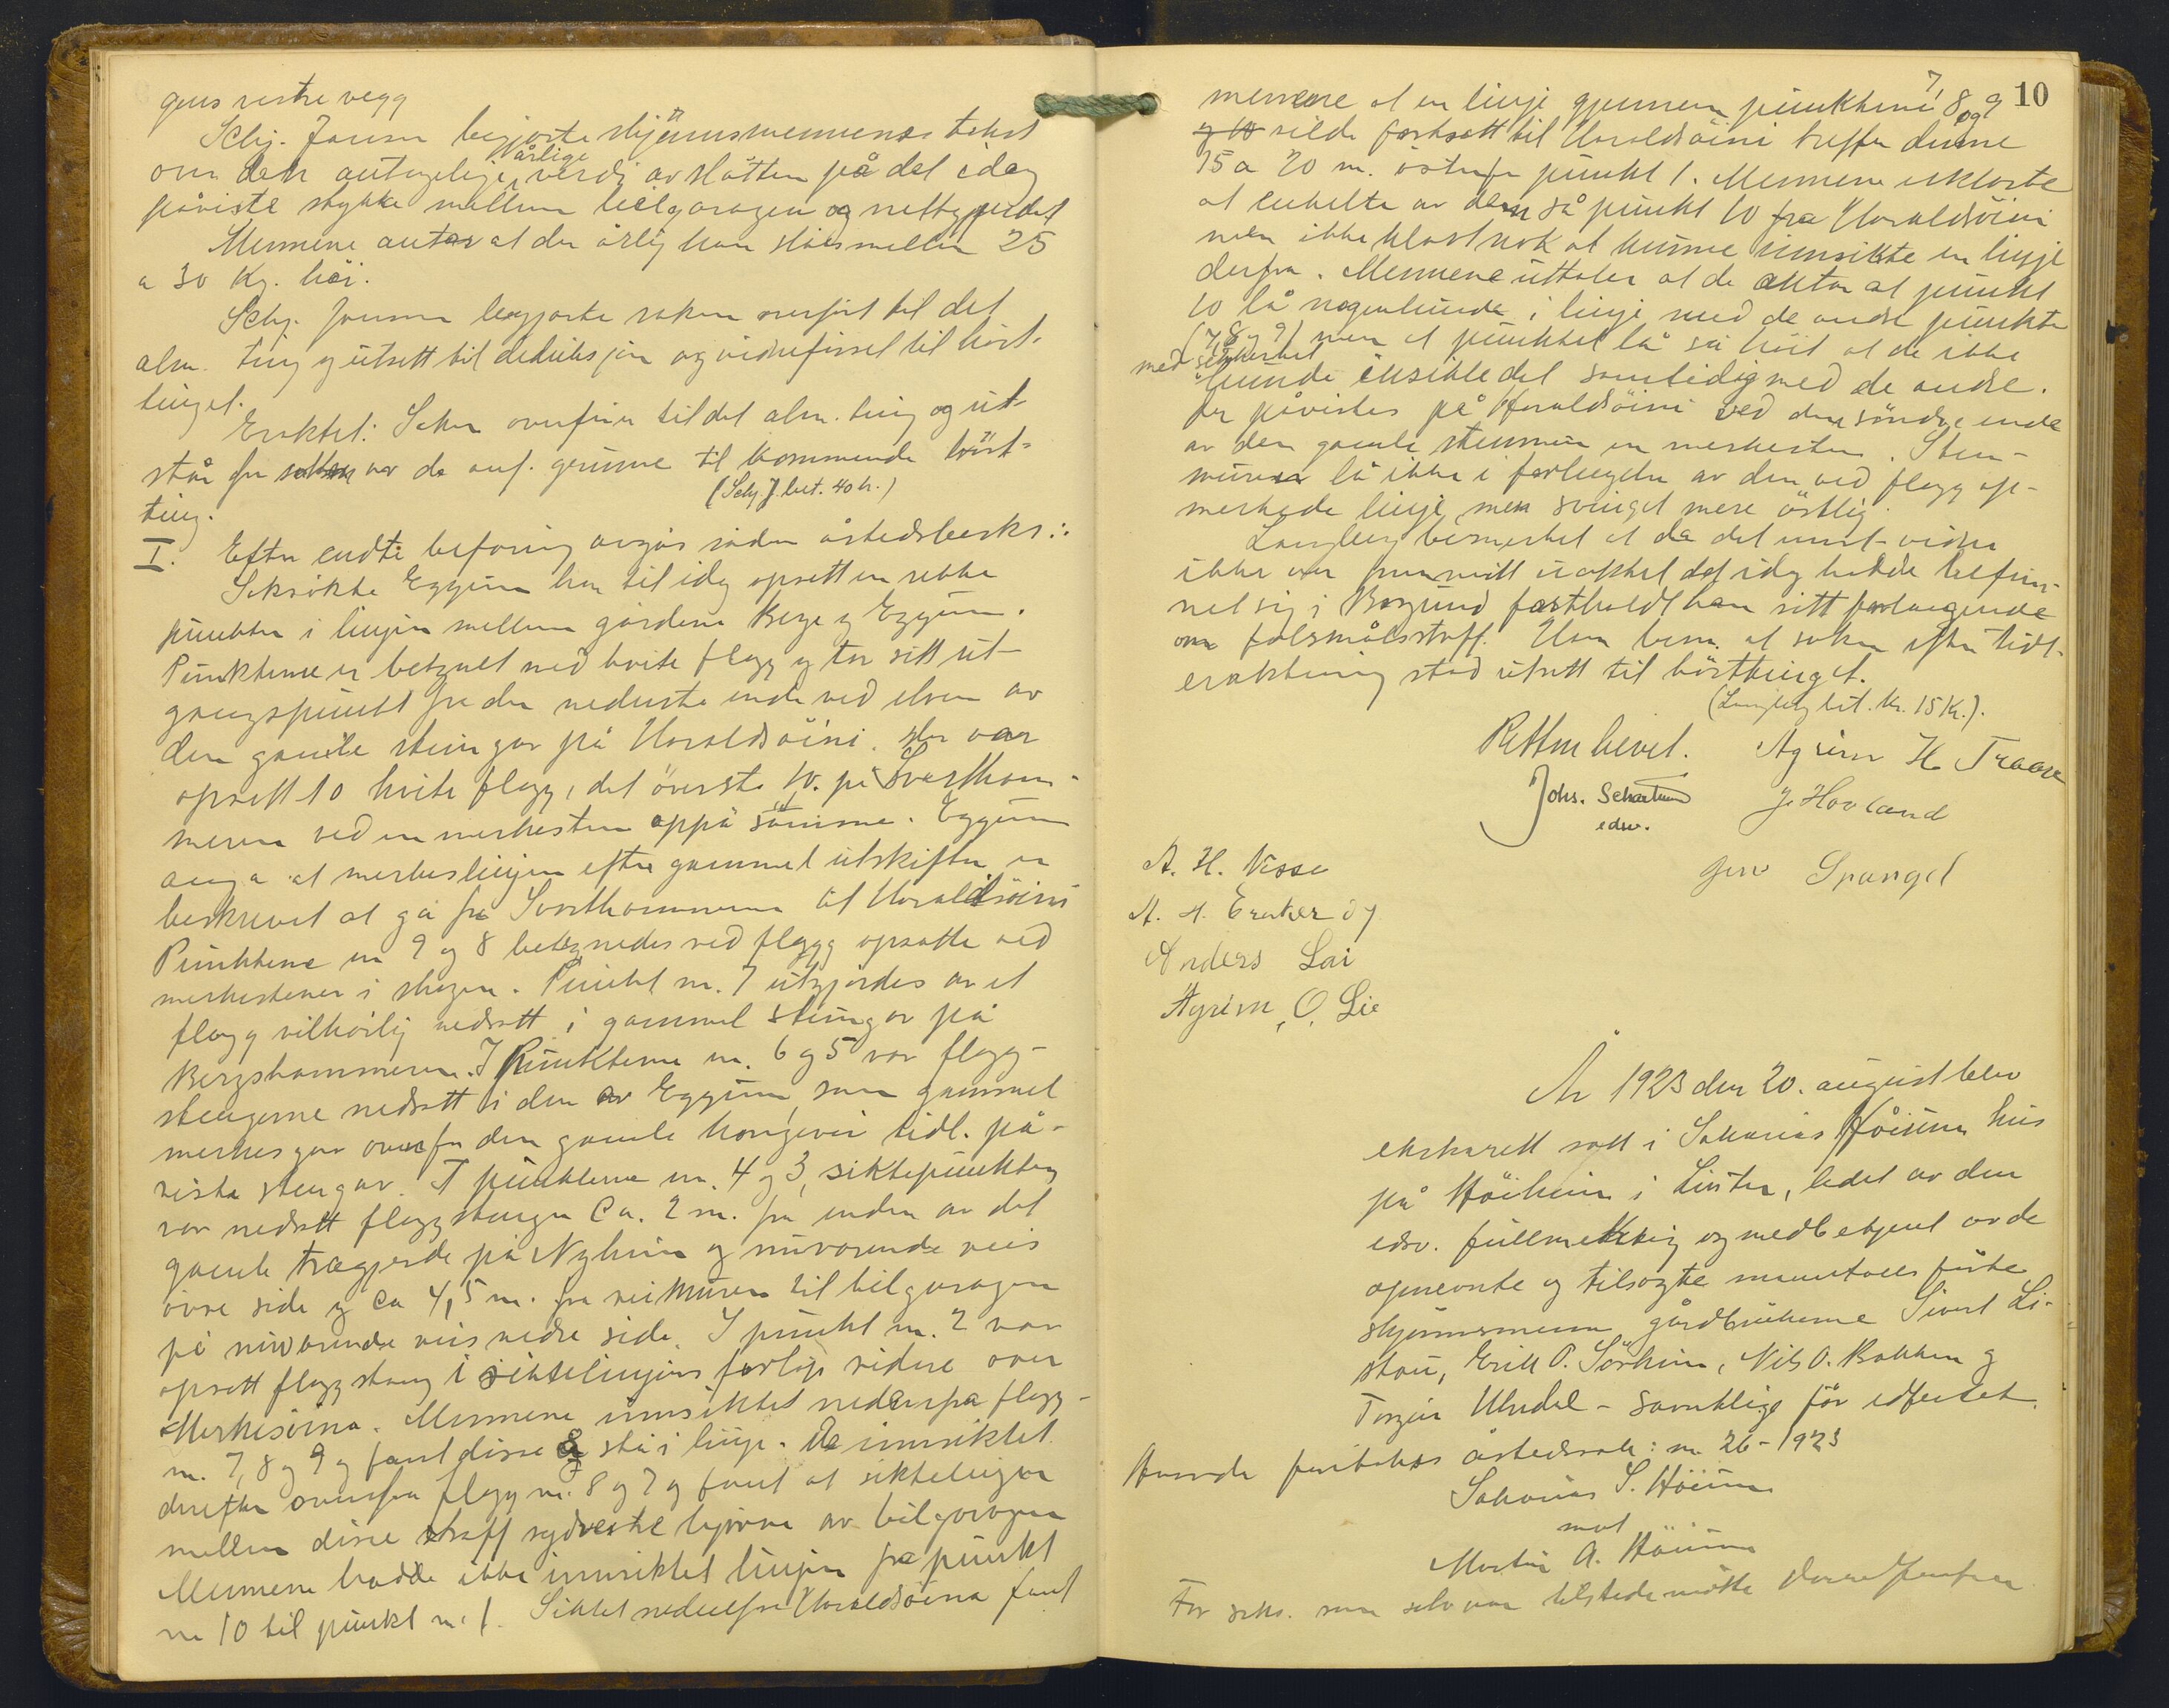 gens vestre vegg
Sclrg. Jonsen begjærte skjønnsmennenes takst
over den antagelige årlige verdi av slåtten på det idag
påviste stykke mellem bilgaragen og nettgjerdet
Mennene antar at der årlig kan slåes mellem 25
a 30 Kg. høi.
Schj. Jonsen begjærte saken overført til det
alm. ting og utsatt til deduksjon og vidneførsel til høst-
tinget.
Eraktet: Saken overføres til det alm. ting og ut-
står fra av de anf. grunne til kommende høst-
(Sch. J. bet. 40 kr.)
ting.
I. Efter endt befaring avgås sådan åstedsbeskr.:
Saksøkte Eggum har til idag opsett en rekke
punkter i linjen mellem gårdene Berge og Eggum.
Punktene er betegnet med hvite flagg og tar sitt ut-
gangspunkt fra den nederste ende ved elven av
den gamle steingar på Haraldsøini. Der var
opsatt 10 hvite flagg, det øverste 10. på Svartham-
meren ved en merkesten oppå samme. Eggum
anga at merkeslinjen efter gammel utskiftn. er
beskrevet at gå fra Svarthammeren til Haraldsøini
Punktene nr 9 og 8 betegnedes ved flagg opsatte ved
merkestener i skogen. Punkt nr. 7 utgjordes av et
flagg vilkårlig nedsatt i gammel steingar på
Bergshammeren. I Punktene nr. 6 og 5 var flagg-
stengerne nedsatt i den av Eggum, som gammel
merkesgar ovenfor den gamle kongevei tidl. på-
viste stengar. I punktene nr. 4 og 3, siktepunkter,
var nedsatt flaggstenger Ca. 2 m. fra enden av det
gamle trægjerde på Nyheim og nuværende veis
øvre side og ca 4,5 m. fra veimuren til bilgaragen
på nuværende veis nedre side. I punkt nr. 2 var
opsatt flaggstang i siktelinjens forløp videre over
Merkisøina. Mennene innsiktet nedenfra flagg-
nr. 7, 8 og 9 og fant disse å stå i linje. De innsiktet
derefter ovenfra flagg nr. 8 og 7 og fant at siktelinjen
mellem disse traff sydvestre hjørne av bilgaragen
Mennene hadde ikke innsiktet linjen fra punkt
nr 10 til punkt nr. 1. Siktet nedenfra Haraldsøina fant
10
mennene at en linje gjennem punktene 7, 8 og 9
vilde fortsatt til Haraldsøini treffe denne
15 a 20 m. østenfor punkt 1. Mennene erklærte
at enkelte av dem så punkt 10 fra Haraldsøini
men ikke klart nok at kunne innsikte en linje
derfra. Mennene uttaler at de antar at punkt
10 lå nogenlunde i linje med de andre punkte
(7, 8, 9) men at punktet lå så høit at de ikke
med sikkerhet
kunde insikte det samtidig med de andre.
Der påvistes på Haraldsøini ved den søndre ende
av den gamle stenmur en merkesten. Sten-
muren lå ikke i forlengelse av den ved flagg op-
merkede linje, men svinget mere østlig.
Langberg bemerket at da det vidne
ikke var fremmøtt uaktet det idag hadde befun-
net sig i Borgund fastholdt han sitt forlangende
om falsmålsstraff. Han bem. at saken efter tidl.
eraktning stod utsatt til høsttinget.
(Langberg bet. kr. 15 Kr.).
Retten hevet. Agrim H Traaen
Johs. Schartum J. Hovland
edsv.
A. H. Nesse Jens Spangel
A. H. Eraker
Anders Lai
Agrim O. Lie
År 1923 den 20. august blev
ekstrarett satt i Sakarias Høiums hus
på Høiheim i Luster, ledet av den
edsv. fullmektig og medbetjent av de
opnevnte og tilsagte
skjønnsmenn gårdbrukerne Sivert Li-
stou, Erik P. Sørheim, Nils O. Bakken og
Torgeir Uhndal - samtlige før edfestet.
Hvorda foretokes åstedssak: nr 26-1923
Sakarias S. Høium
mot
Martin A. Høium
For saks. som selv var tilstede møtte